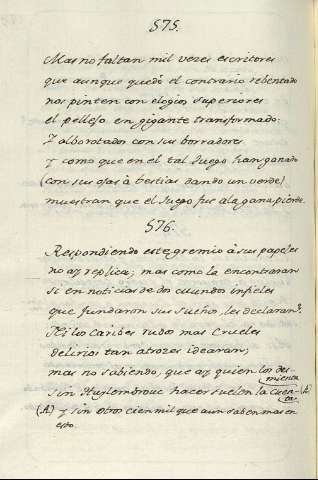 575.
Mas no faltan mil vezes escritores
que aunque quedó el contrario rebentado
nos pinten con elogios superiores
el pellejo en gigante transformado:
Y alborotados con sus borradores
y como que en el tal Juego han ganado
(con sus ojas à bestias dando un verde)
muestran que el Juego fue ala gana, pierde.
576.
Respondiendo este gremio à sus papeles
no ay replica; mas como la encontraran
si en noticias de dos mundos infieles
que fundaron sus sueños, les declaran?
Ni los Caribes rudos mas crueles
delirios tan atrozes idearan;
mas no sabiendo, que ay quien los des-
mienta
sin hacer suelen la cuen- (A)
ta.
(A) y sin otros cien mil que aun saben mas en
esto.